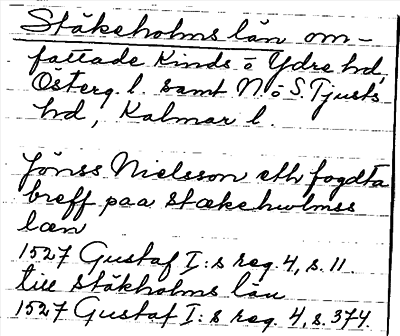 Stäkeholms län om-
fattade Kinds o Ydre hd,
Österg. l. samt N. o S. Tjusts
hd, Kalmar l.
Jönss Nielsson eth fogdta
breff paa Stækehwlmss
læn
1527 Gustaf I:s reg. 4, s. 11.
till Stäkholms län
1527 Gustaf I:s reg. 4, s. 374.